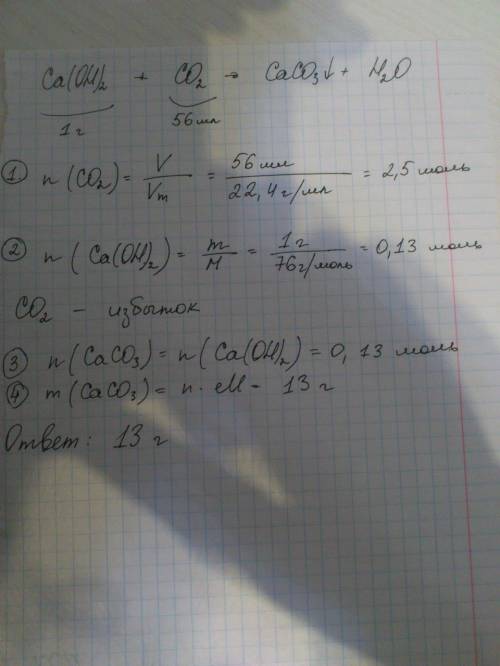 Ca(OH)₂ + CO₂ → CaCO₃↓ + H₂O
1 г 56 мл
① n (CO₂) = V/Vm = 56 мл/22,4 г/мл = 2,5 моль
② n ( Ca(OH)₂) = m/M = 1 г/76 г/моль = 0,13 моль
CO₂ – избыток
③ n (CaCO₃) = n ( Ca(OH)₂) = 0, 13 моль
④ m (CaCO₃) = n · M = 13 г
Ответ: 13 г